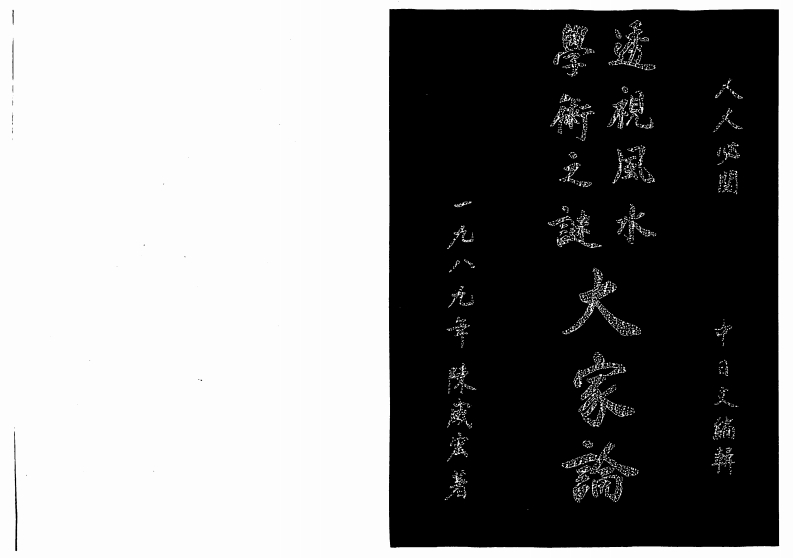 人人必閱
中日文編輯
透視風水
學術之謎
大家論
一九八九年陳威宏著